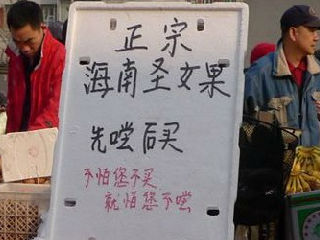 正宗
海南圣女果
先嚐后买
不怕您不买
就怕您不嚐